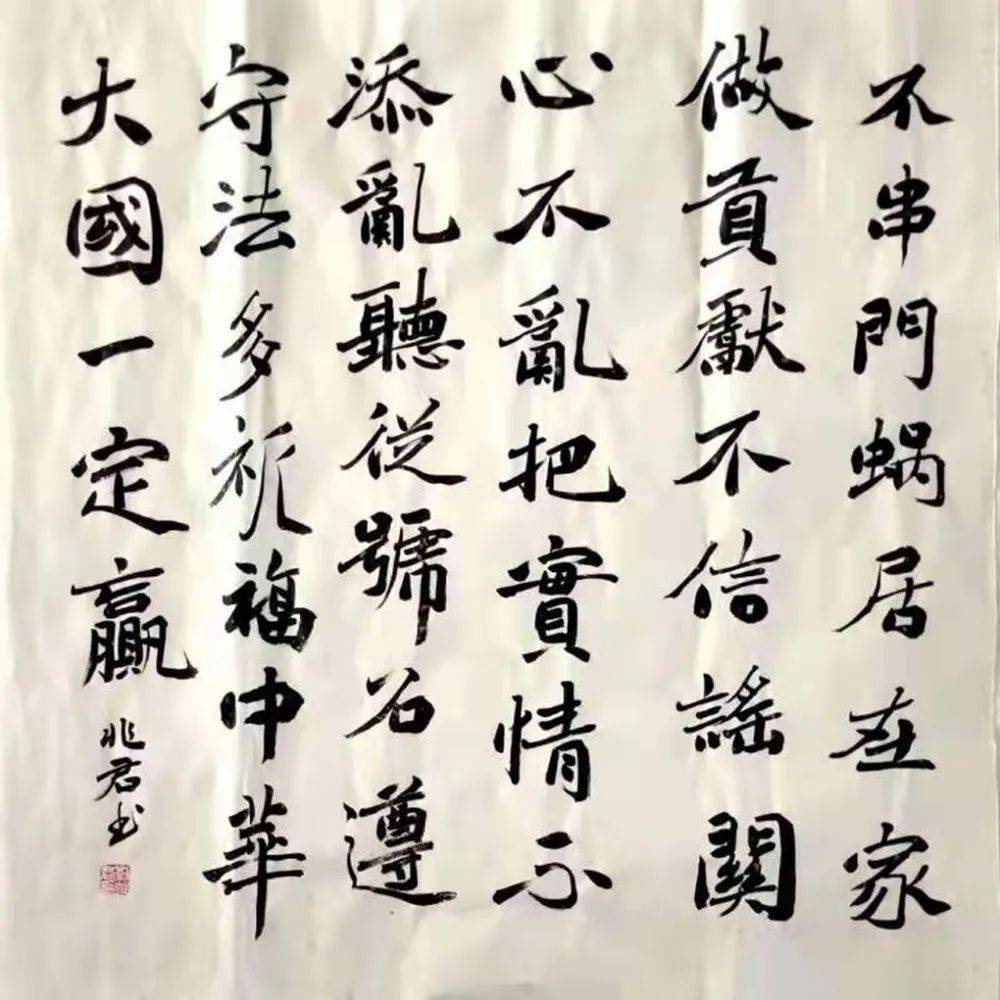 不串門蝸居在家
做貢獻不信謠關
心不亂把實情示
添亂聽從號召遵
守法多祈福中華
大國一定贏
兆君书